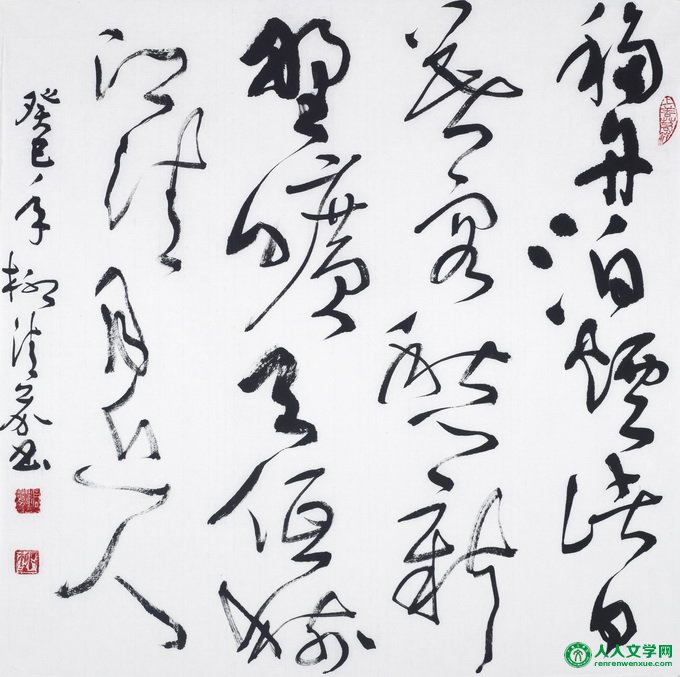 移舟泊煙渚日
暮客愁新
野曠天低樹
江清月近人
癸巳年柳清书
人人文学网
renrenwenxue.com